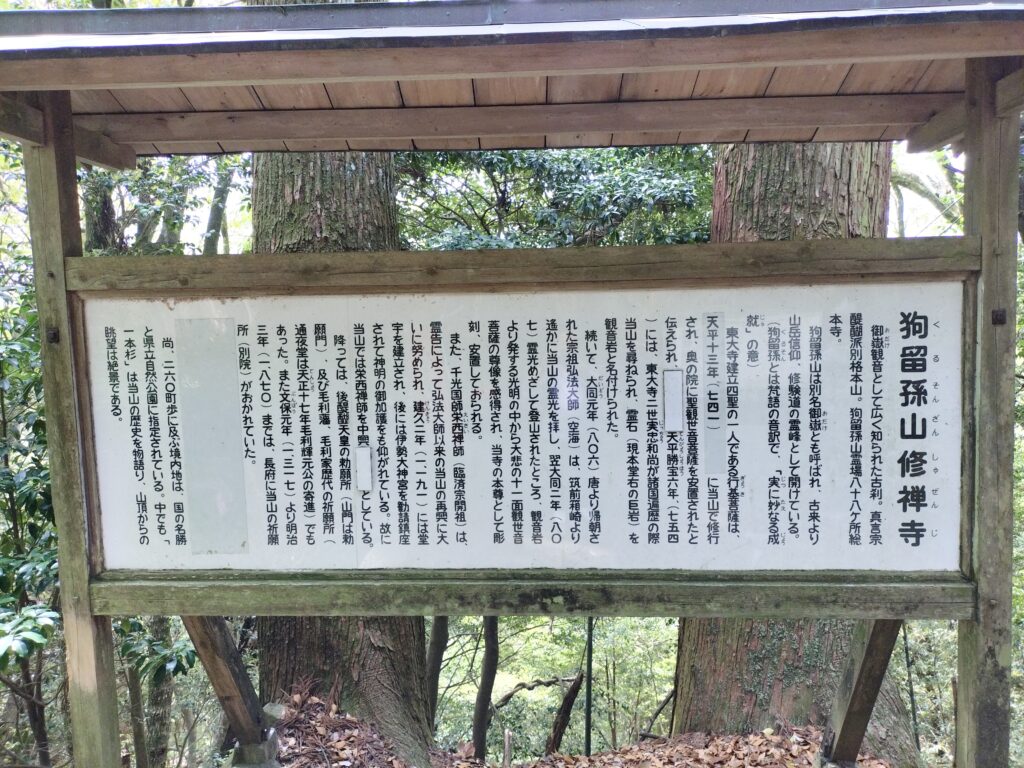 狗留孫山修禅寺
くるそんざんしゅぜんじ
御嶽観音として広く知られた古刹。真言宗
醍醐派別格本山。狗留孫山霊場八十八ケ所総
本寺。
狗留孫山は別名御嶽とも呼ばれ、古来より
山岳信仰、修験道の霊峰として開けている。
(狗留孫とは梵語の音訳で、「実に妙なる成
就」の意)
東大寺建立四聖の一人である行基菩薩は、
天平十三年(七四一)に当山で修行
され、奥の院に聖観世音菩薩を安置されたと
伝えられ、天平勝宝六年、(七五四
)には、東大寺二世実忠和尚が諸国遍歴の際
当山を尋ねられ、霊石(現本堂右の巨岩)を
観音岩と名付けられた。
続いて、大同元年(八〇六)唐より帰朝さ
れた宗祖弘法大師(空海)は、筑前箱崎より
遥かに当山の霊光を拝し、翌大同二年(八〇
七)霊光めざして登山されたところ、観音岩
より発する光明の中から大悲の十一面観世音
菩薩の尊像を感得され、当寺の本尊として彫
刻、安置しておられる。
また、千光国師栄西禅師(臨済宗開祖)は、
霊告によって弘法大師以来の当山の再興に大
いに努められ、建久三年(一一九一)には堂
宇を建立され、後には伊勢大神宮を勧請鎮座
されて神明の御加護をも仰がれている。故に
当山では栄西禅師を中興としている。
降っては、後醍醐天皇の勅願所(山門は勅
願門)、及び毛利藩、毛利家歴代の祈願所(
通夜堂は天正十七年毛利輝元公の寄進)でも
あった。また文保元年(一三一七)より明治
三年(一八七〇)までは、長府に当山の祈願
所(別院)がおかれていた。
尚、二六〇町歩に及ぶ境内地は、国の名勝
と県立自然公園に指定されている。中でも「
一本杉」は当山の歴史を物語り、山頂からの
眺望は絶景である。